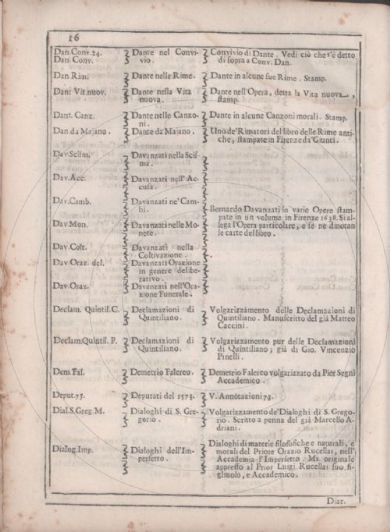 16
Dan. Conv. 24. Dante nel Convi- Convivio di Dante. Vedi ciò che s'è detto
Dan. Conv. vio. di sopra a Conv. Dan.
Dan Rim. Dante nelle Rime. Dante in alcune sue Rime. Stamp.
Dan: Vit. nuov. Dante nella Vita Dante nell'Opera, detta la Vita nuova,
nuova. stamp.
Dant. Canz. Dante nelle Canzo- Dante in alcune Canzoni morali. Stamp.
ni.
Dan da Majano. Dante da Majano. Uno de' Rimatori del libro delle Rime anti-
che, stampate in Firenze da' Giunti.
Dav. Scism. Davanzati nella Scis-
ma.
Dav. Acc. Davanzati nell'Ac-
cusa.
Dav. Camb. Davanzati ne' Cam- Bernardo Davanzati in varie Opere stam-
bi. pate in un volume in Firenze 1638. Si al-
Dav. Mon. Davanzati nelle Mo- lega l'Opera particolare, e se ne dinotan
nete. le carte del libro.
Dav. Colt. Davanzati nella
Coltivazione.
Dav. Oraz. del. Davanzati Orazione
in genere delibe-
rativo.
Dav. Oraz. Davanzati nell'Ora-
zione Funerale.
Declam. Quintil. C. Declamazioni di Volgarizzamento delle Declamazioni di
Quintiliano. Quintiliano. Manuscritto del già Matteo
Caccini.
Declam. Quintil. P. Declamazioni di Volgarizzamento pur delle Declamazioni
Quintiliano. di Quintiliano, già di Gio. Vincenzio
Pinelli.
Dem. Fal. Demetrio Falereo. Demetrio Falereo volgarizzato da Pier Segni
Accademico.
Deput. 73. Deputati del 1573. V. Annotazioni 73.
Dial. S. Greg. M. Dialoghi di S. Gre- Volgarizzamento de' Dialoghi di S. Grego-
gorio. rio. Scritto a penna del già Marcello A-
driani.
Dialog. Imp. Dialoghi dell'Im- Dialoghi di materie filosofiche e naturali, e
perfetto. morali del Priore Orazio Rucellai, nell'
Accademia l'Imperfetto. Ms. originale
appresso al Prior Luigi Rucellai suo fi-
gliuolo, e Accademico.
Diar.